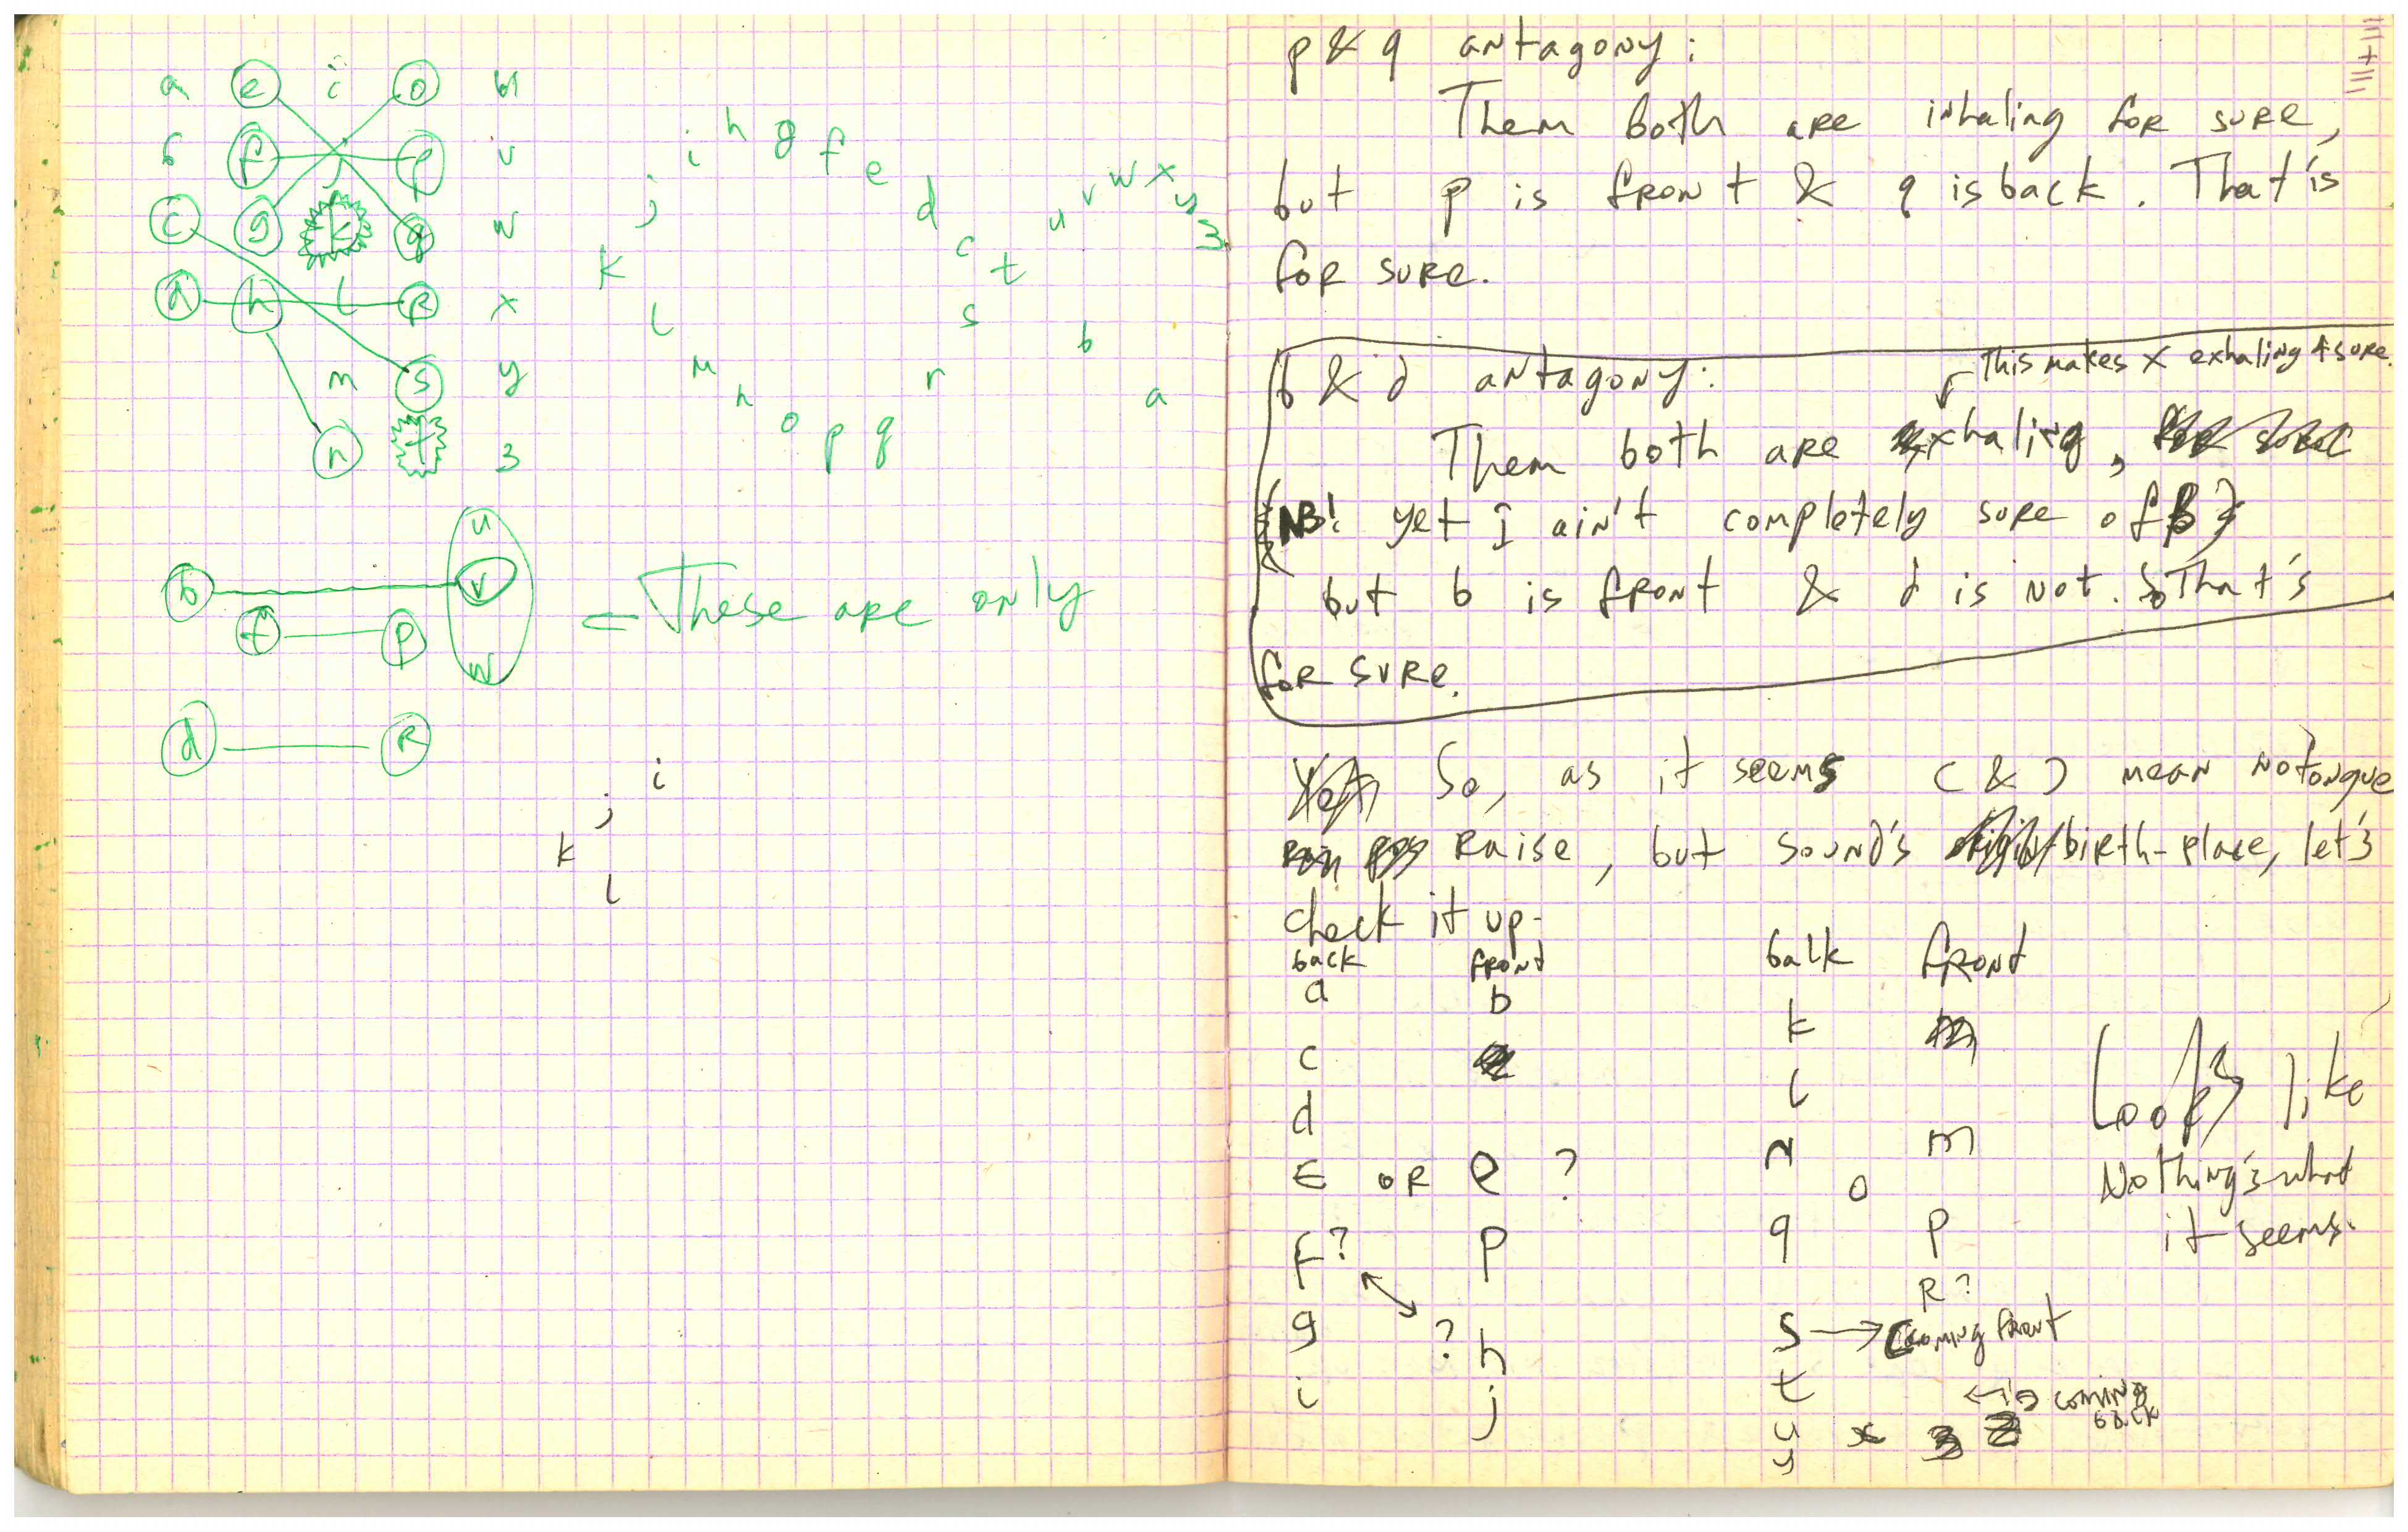 a e i o u
b f j p v
c g k q w
d h l R x
m s y
n t 3
i h g f e
j d u v w x y 3
k c t
l s b
m r a
n o p q
u
b v
f p
w
These are only
d R
i
j
k
l
p & q antagony:
Them both are inhaling for sure,
but p is front & q is back. That's
for sure.
This makes x exhaling 4 sure.
b & d antagony:
Them both are exhaling,
NB! yet I ain't completely sure of
but b is front & d is not. That's
for sure.
So, as it seems ( & ) mean no tongue
Raise, but sound's birth-place, let's
check it up.
back front back front
a b
c k
d l
E OR e ? N m
o
F? p q p
R?
g ? h s → coming front
i j t ← is coming back
u x
y
Looks like
Nothing's what
it seems.